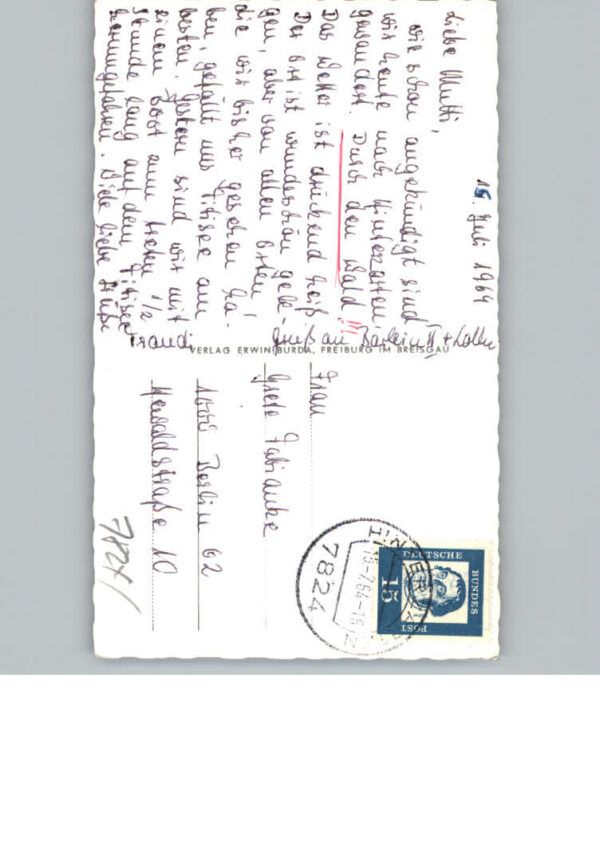 15. Juli 1964
Liebe Mutti,
wie schon angekündigt sind
wir heute nach Hinterzarten
gewandert. Durch den Wald!!!
Das Wetter ist drückend heiß.
Der Ort ist wunderschön gele-
gen, aber von allen Orten,
die wir bisher gesehen ha-
ben, gefällt uns Titisee am
besten. Gestern sind wir mit
einem Boot zum treten 1/2
Stunde lang auf dem Titisee
herumgefahren. Viele liebe Grüße
Gruß an
VERLAG ERWIN BURDA, FREIBURG IM BREISGAU
Frau
Grete Fabianke
1000 Berlin 62
Hewaldstraße 10
7824
HINTERZARTEN
15.-7.64-16
7824
DEUTSCHE
BUNDES
POST
15